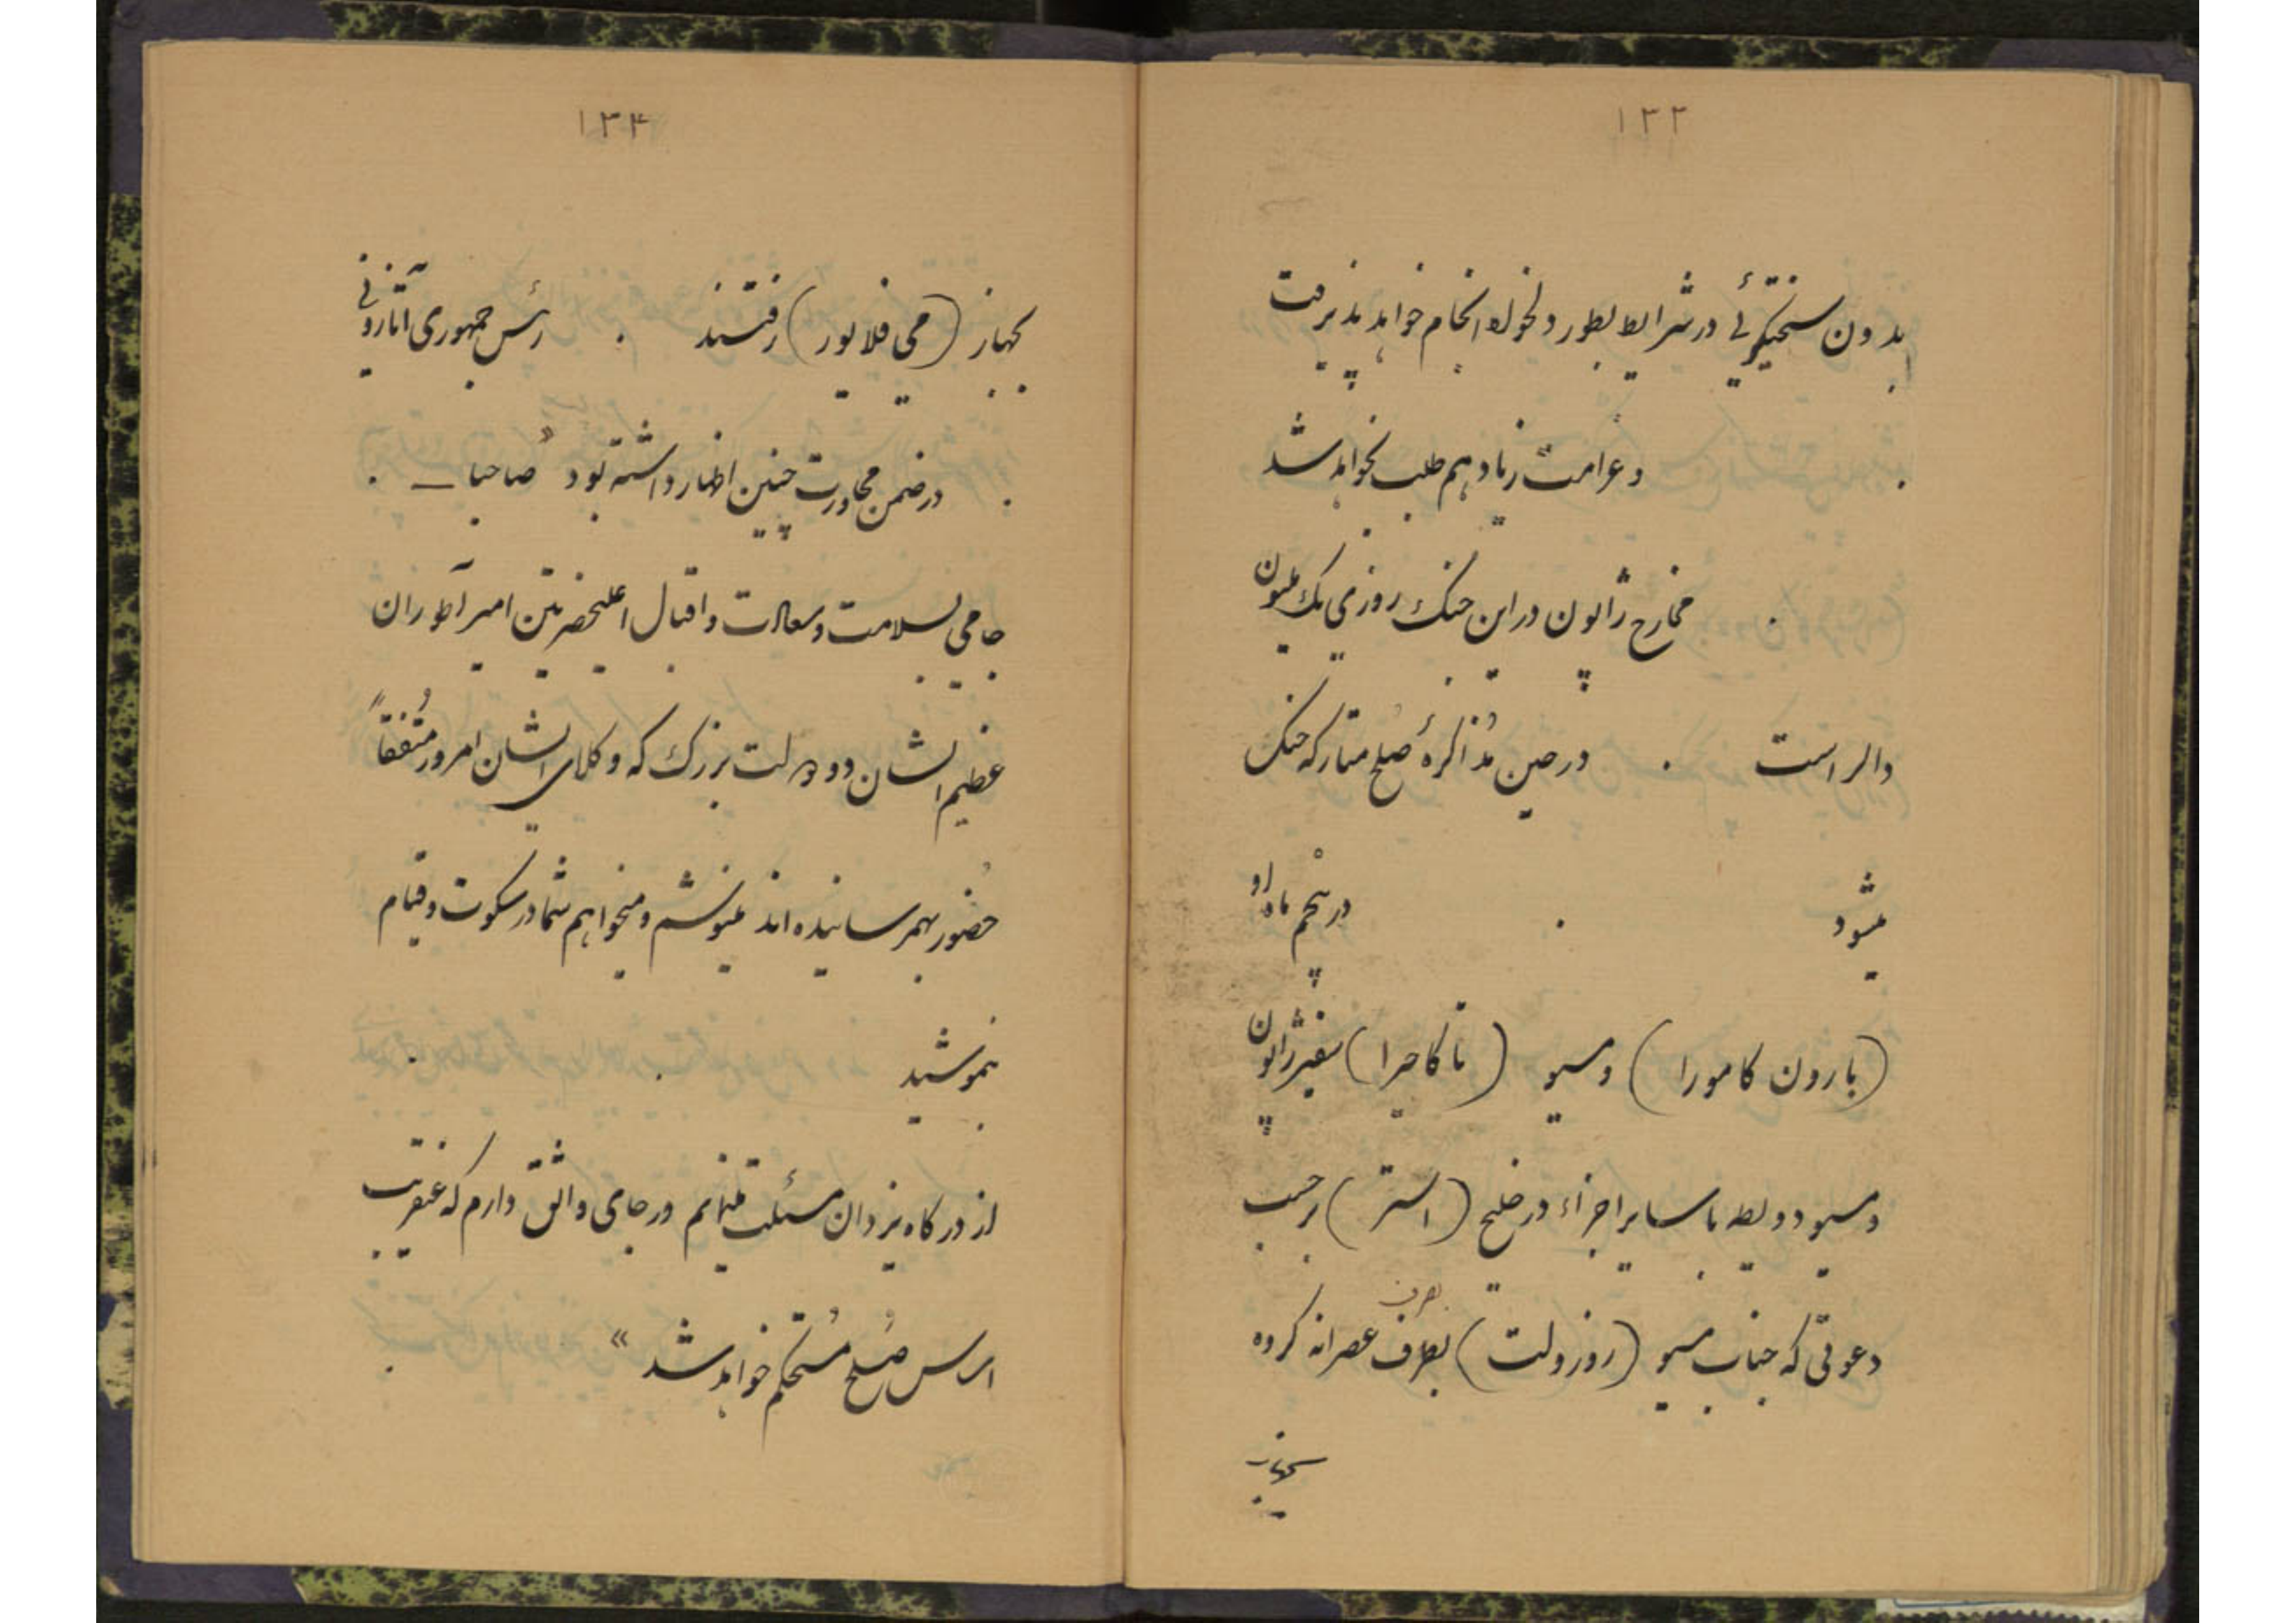 ۱۳۳
بدون سختیگرئی در شرایط بطور دلخواه انجام خواهد پذیرفت
و غرامت زیاد هم طلب نخواهد شد .
مخارج ژاپون در این جنک روزی یک ملیون
دالر است . در حین مُذاکرهٔ صُلح متارکه جنک
میشود . در پنجم ماه او
(بارون کامورا) و مسیو (تاکاهیرا) سفیر ژاپون
و مسیو دویطه با سایر اجزاء در خلیج (استر) بر حسب
دعوتی که جناب مسیو (روزولت) بصرف عصرانه کرده
بجهاز
۱۳۴
بجهاز (می فلاپور) رفتند . رئس جمهوری آتازونی
در ضمن مجاورت چنین اظهار داشته بود « صاحبا ـ .
جامی بسلامت و سعادت و اقبال اعلیحضرتین امپراطوران
عظیم الشان دو دولت بزرک که وکلای ایشان امروز متُفقاً
حضُور بهمرسانیده‌اند مینوشم و میخواهم شما در سکوت و قیام
بنوشید . .
از درگاه یزدان مسئلت مینمایم و رجای واثق دارم که عنقریب
اساس صُلح مُستحکم خواهد شد »